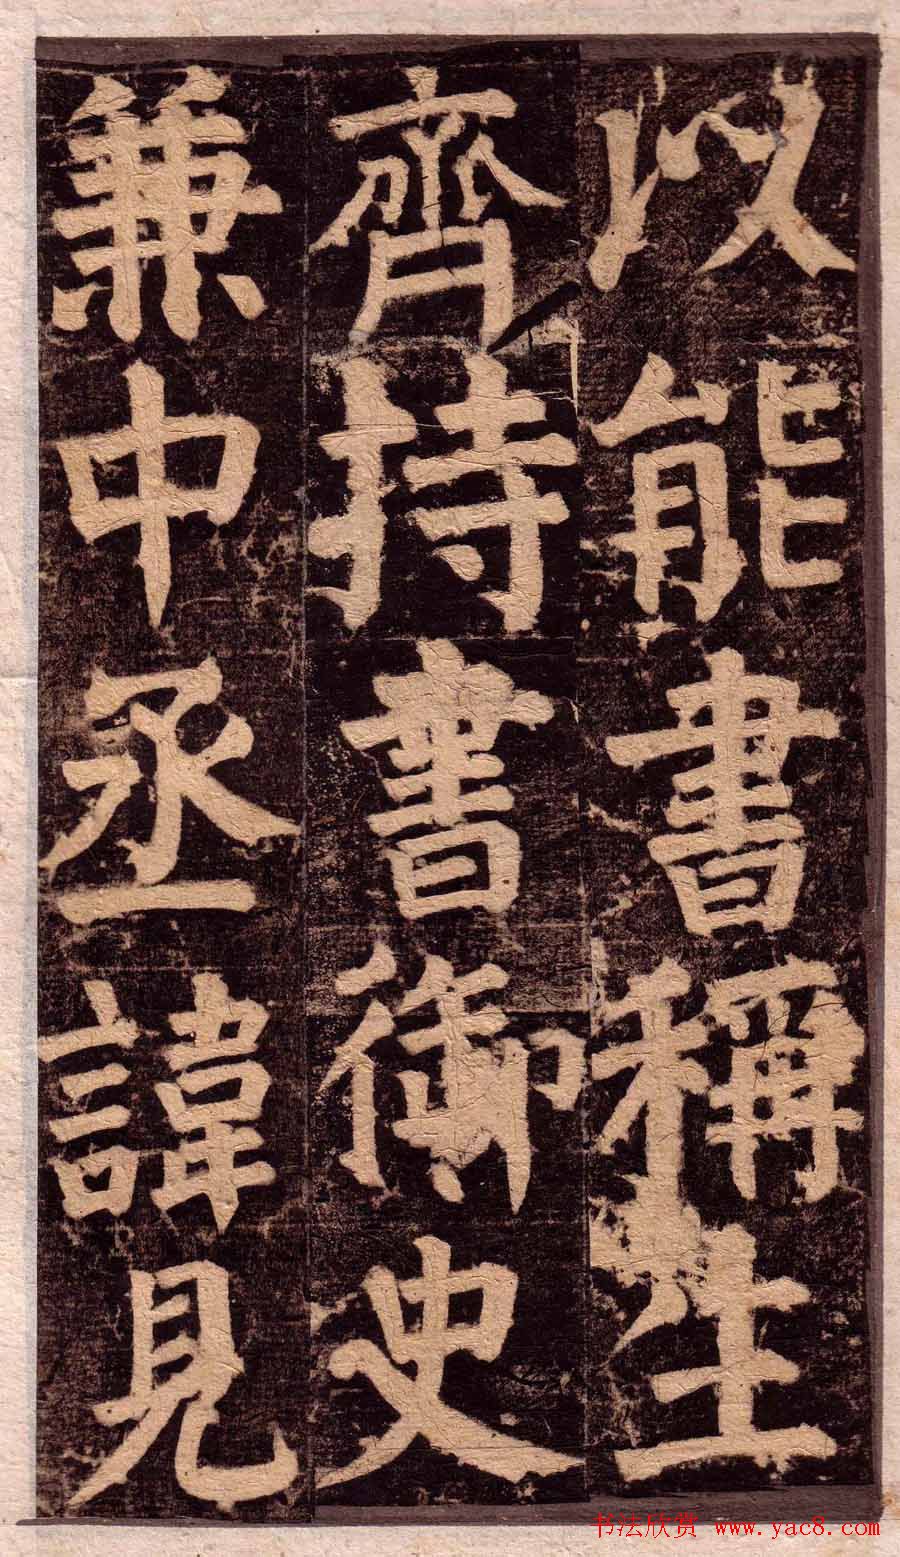 以能書稱生
齊持書御史
兼中丞諱見
书法欣赏 www.yac8.com